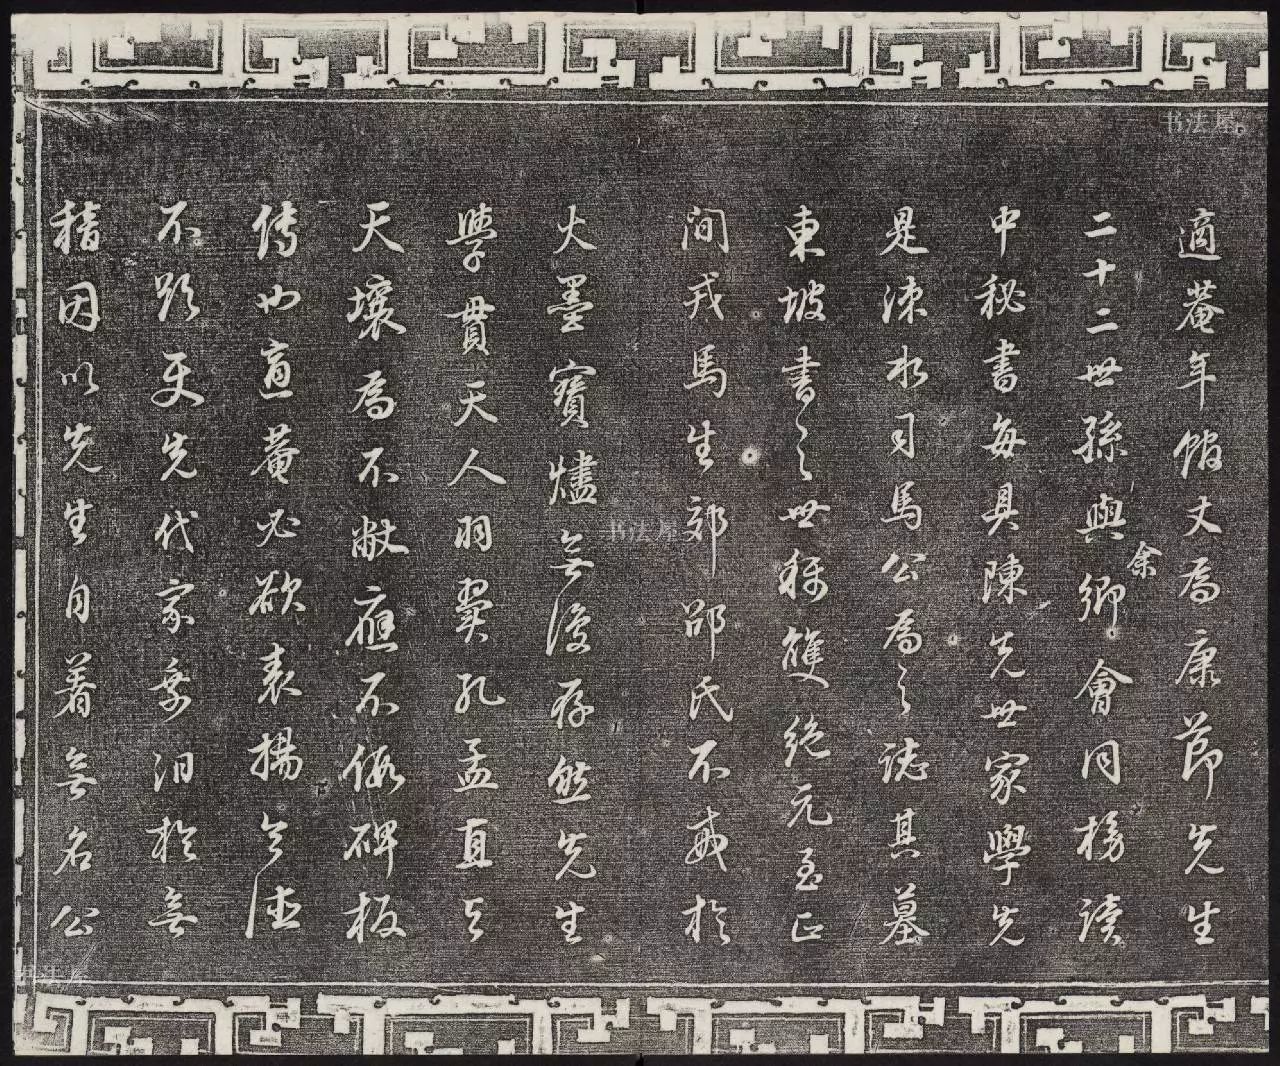 適菴年館丈為康節先生
二十二世孫與余卿會同榜讀
中秘書每具陳先世家學先
是涑水司馬公為之誌其墓
東坡書之世稱雙絕元至正
間戎馬生郊邵氏不戒於
火墨寶燼無復存然先生
學貫天人羽翼孔孟直與
天壤為不敝應不假碑板
傳也菴必欲表揚令德
不先代家乘汨於無
稽因以先生自著無名公
书法屋
书法屋
书法屋